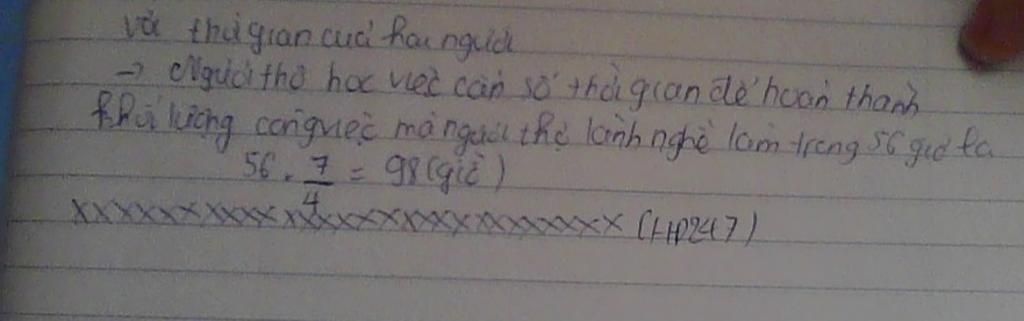 và thời gian của hai người
→ Người thợ học việc cần số thời gian để hoàn thành
khối lượng công việc mà người thợ lành nghề làm trong 56 giờ là
56 . 7/4 = 98 (giờ)
xxxxxxxxxxxxxxxxxxxxxxxxxxx (HP247)